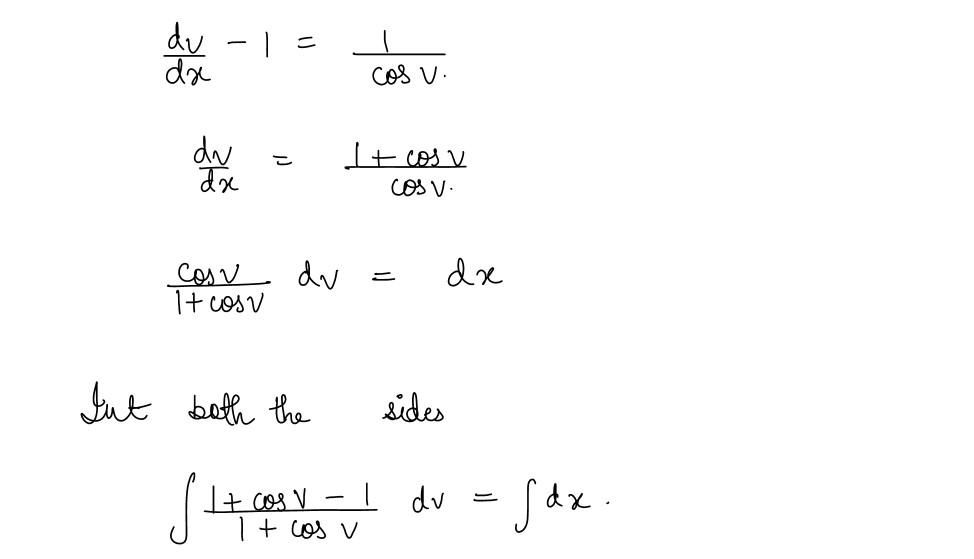 dv/dx - 1 = 1/cos v.
dv/dx = (1 + cos v)/cos v.
cos v/(1 + cos v) dv = dx
Int both the sides
∫ (1 + cos v - 1)/(1 + cos v) dv = ∫ dx.